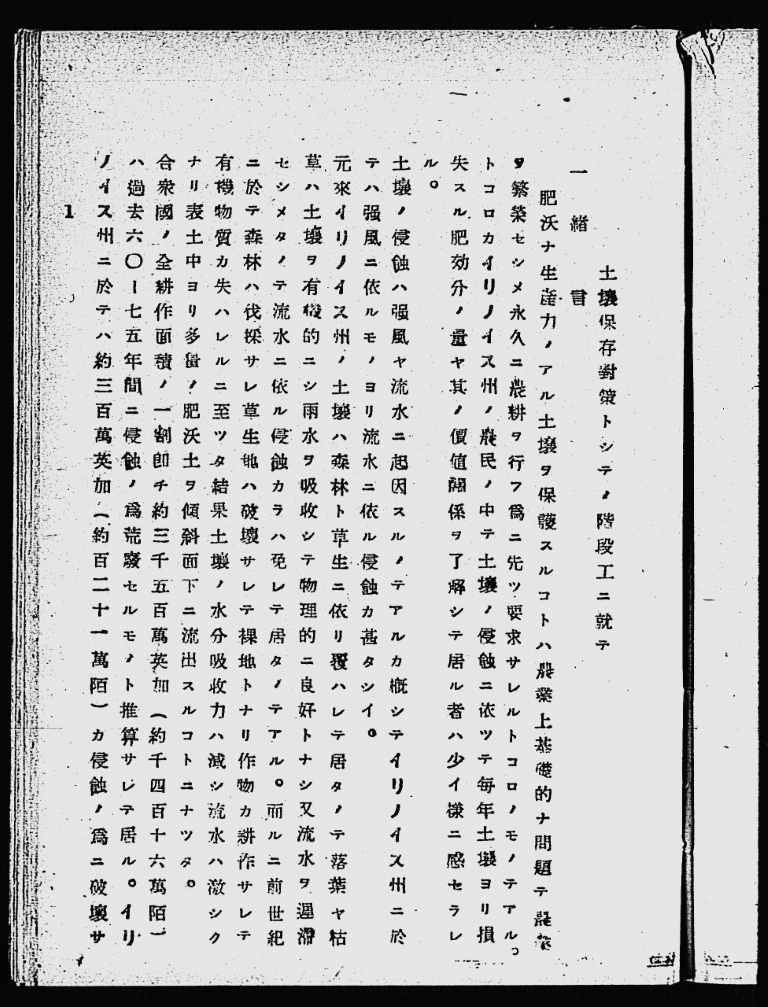 土壤保存對策トシテノ階段工ニ就テ
一 緒言
肥沃ナ生產力ノアル土壤ヲ保護スルコトハ農業上基礎的ナ問題テ農業
ヲ繁榮セシメ永久ニ農耕ヲ行フ爲ニ先ツ要求サレルトコロノモノテアル。
トコロカイリノイス州ノ農民ノ中テ土壤ノ侵蝕ニ依ツテ每年土壤ヨリ損
失スル肥効分ノ量ヤ其ノ價値關係ヲ了解シテ居ル者ハ少イ樣ニ感セラレ
ル。
土壤ノ侵蝕ハ强風ヤ流水ニ起因スルノテアルカ槪シテイリノイス州ニ於
テハ强風ニ依ルモノヨリ流水ニ依ル侵蝕カ甚タシイ。
元來イリノイス州ノ土壤ハ森林ト草生ニ依リ覆ハレテ居タノテ落葉ヤ枯
草ハ土壤ヲ有機的ニシ雨水ヲ吸收シテ物理的ニ良好トナシ又流水ヲ遲滯
セシメタノテ流水ニ依ル侵蝕カラハ免レテ居タノテアル。而ルニ前世紀
ニ於テ森林ハ伐採サレ草生地ハ破壞サレテ裸地トナリ作物カ耕作サレテ
有機物質カ失ハレルニ至ツタ結果土壤ノ水分吸收力ハ減シ流水ハ激シク
ナリ表土中ヨリ多量ノ肥沃土ヲ傾斜面下ニ流出スルコトニナツタ。
合衆國ノ全耕作面積ノ一割卽チ約三千五百萬英加(約千四百十六萬陌)
ハ過去六〇ー七五年間ニ侵蝕ノ爲荒廢セルモノト推算サレテ居ル。イリ
ノイス州ニ於テハ約三百萬英加(約百二十一萬陌)カ侵蝕ノ爲ニ破壞サ
1